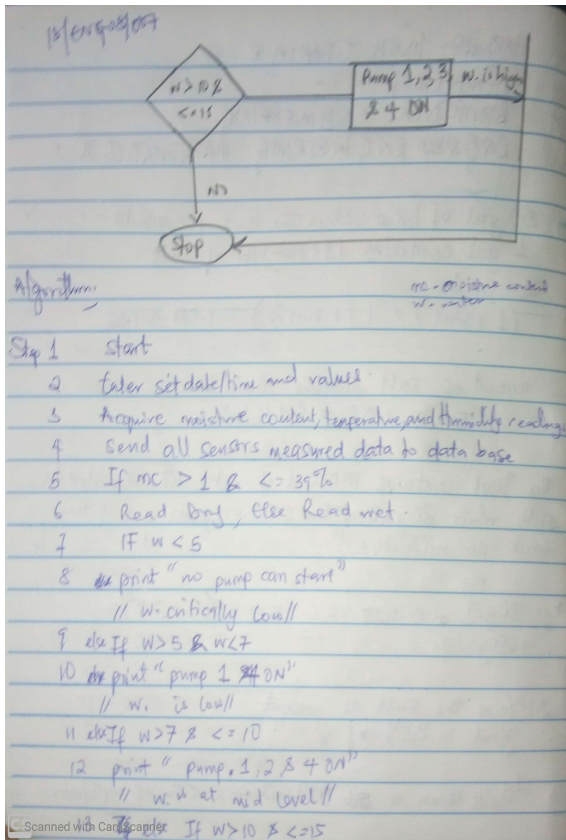 18/ENG08/007
W>10 &
<=15
Pump 1,2,3,
& 4 ON
w. is high
NO
Stop
Algorithm
mc - moisture content
w - water
Step 1 Start
2 Enter set date/time and values.
3 Acquire moisture content, temperature, and Humidity readings
4 Send all sensors measured data to data base
5 If mc > 1 & <= 39%
6 Read Dry, Else Read wet.
7 IF w < 5
8 print "no pump can start"
// w. critically low//
9 else If w>5 & w<7
10 print "pump 1 & 4 ON"
// w. is low//
11 else If w>7 & <=10
12 print "pump. 1,2,& 4 ON"
// w. is at mid level//
13 If w>10 & <=15
Scanned with CamScanner